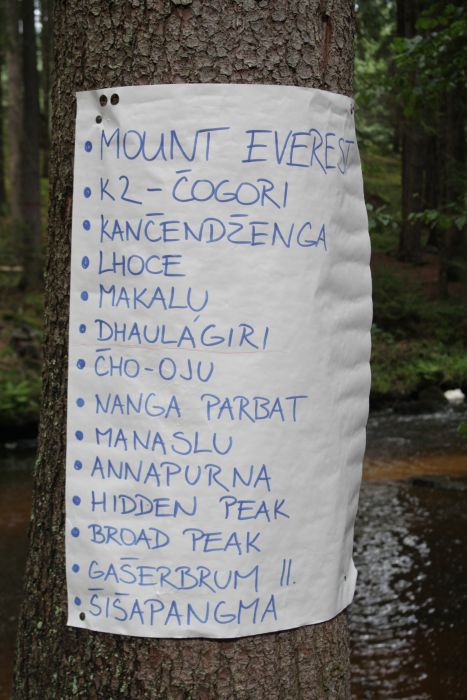 • MOUNT EVEREST
• K2 - ČOGORI
• KANČENDŽENGA
• LHOCE
• MAKALU
• DHAULÁGIRI
• ČHO-OJU
• NANGA PARBAT
• MANASLU
• ANNAPURNA
• HIDDEN PEAK
• BROAD PEAK
• GAŠERBRUM II.
• ŠIŠAPANGMA